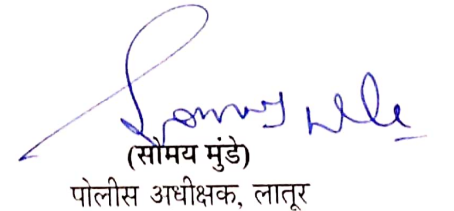 (सौमय मुंडे)
पोलीस अधीक्षक, लातूर